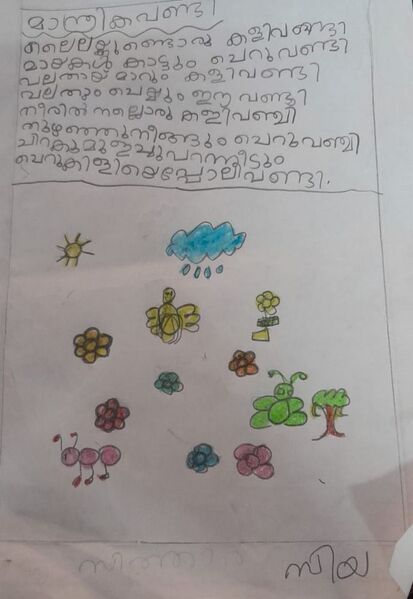 മാന്ത്രികവണ്ടി
ലൈലയ്ക്കുണ്ടൊരു കളിവണ്ടി
മായകൾ കാട്ടും ചെറുവണ്ടി
പലതായ് മാറും കളിവണ്ടി
പലതും ചെയ്യും ഈ വണ്ടി
നീരിൽ നല്ലൊരു കളിവഞ്ചി
തുഴഞ്ഞുനീങ്ങും ചെറുവഞ്ചി
ചിറകുമുളച്ചുപറന്നീടും
ചെറുകിളിയെപ്പോലീവണ്ടി.
സിയ